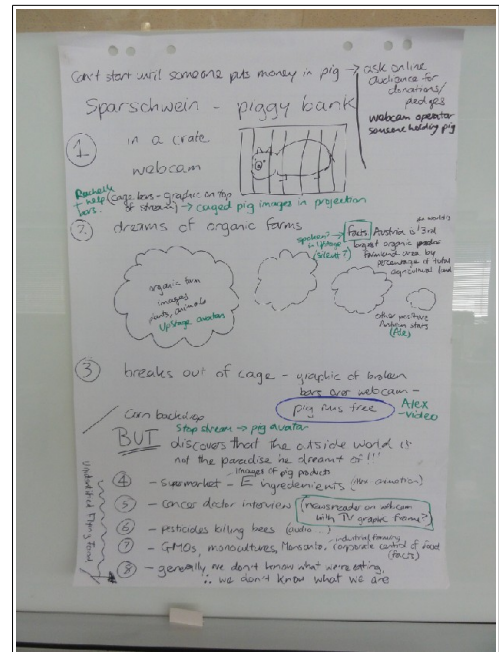 Can't start until someone puts money in pig → ask online
audience for
donations/
pledges
webcam operator
someone holding pig
Sparschwein - piggy bank
1.
in a crate
webcam
Rachelle
help
bars.
(cage bars - graphic on top
of stream) → caged pig images in projection
2. dreams of organic farms
spoken?
in UpStage
(silent?)
Facts: Austria is 3rd
the world's
largest organic
farmland area by
percentage of total
agricultural land
organic farm
images
plants, animals
UpStage avatars
other positive
stats
3 breaks out of cage - graphic of broken
bars over webcam -
pig runs free
Alex
-video
Corn backdrop
Stop stream → pig avatar
BUT discovers that the outside world is
not the paradise he dreamt of!!!
images of pig products
4 - supermarket - E ingredients
5 - cancer doctor interview
newsreader on webcam
with TV graphic frame?
6 - pesticides killing bees (audio...)
7 - GMOs, monocultures, Monsanto, corporate control of food
industrial farming
(facts)
8 - generally we don't know what we're eating,
∴ we don't know what we are
Unidentified Flying Food